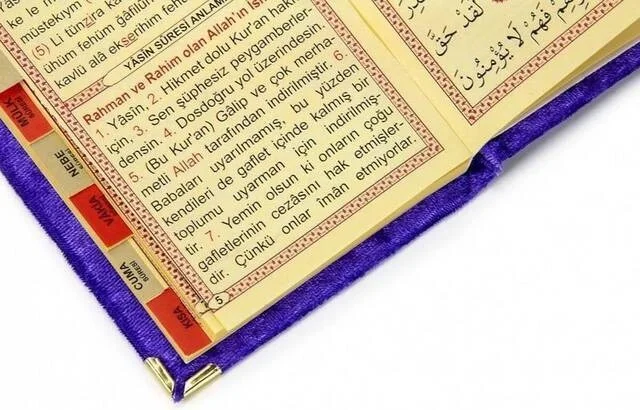 ke le m
müstekıym (
(5) Li tünzira ka
ühüm fehüm ğâfilûn
kavlü alâ ekserihim fehü
YASİN SÛRESİ ANLAM
Rahman ve Rahim olan Allah'ın is
1. Yâsîn, 2. Hikmet dolu Kur'an hakkı
için, 3. Sen şüphesiz peygamberler
densin. 4. Dosdoğru yol üzerindesin.
5. (Bu Kur'an) Gâlip ve çok merha-
metli Allah tarafından indirilmiştir. 6.
Babaları uyarılmamış, bu yüzden
kendileri de gaflet içinde kalmış bir
toplumu uyarman için indirilmiş-
tir. 7. Yemin olsun ki onların çoğu
gafletlerinin cezâsını hak etmişler-
dir. Çünkü onlar îmân etmiyorlar.
5
MÜLK
SÛRESİ
NEBE
SÛRESİ
VAKIA
CUMA
SÛRESİ
KISA
لَقَدْ حَقَّ
فَهُمْ لَا يُؤْمِنُونَ